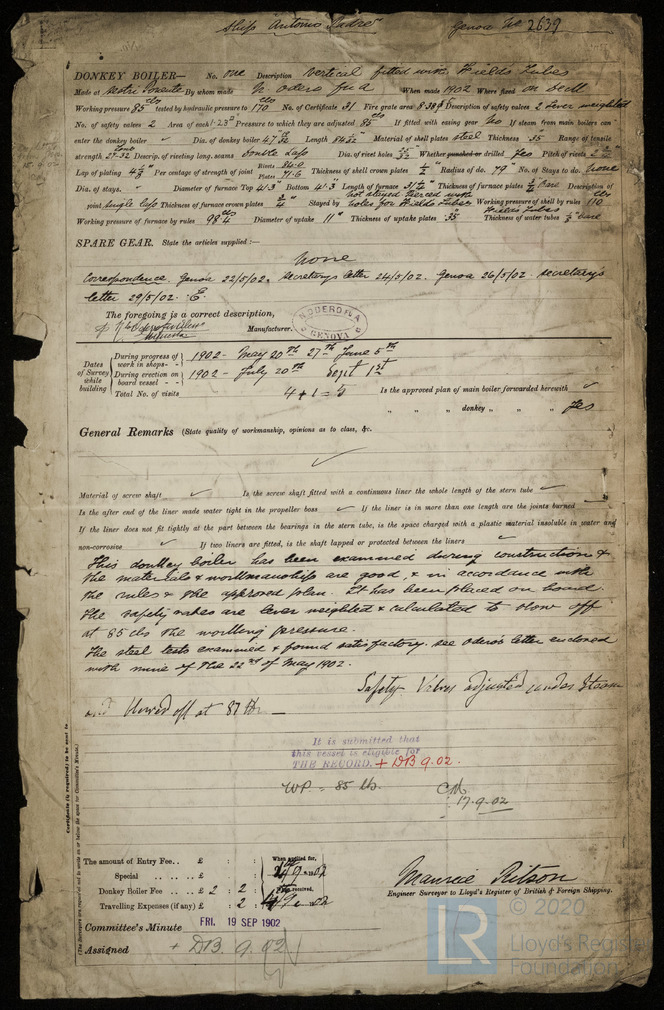 Ship Antonio Padre Genoa No 2639
DONKEY BOILER— No. one Description Vertical fitted with Fields Tubes
Made at Sestri Ponente By whom made N. Odero fu A When made 1902 Where fixed on deck
Working pressure 85 lbs tested by hydraulic pressure to 170 lbs No. of Certificate 31 Fire grate area Description of safety valves 2 Lever weighted
No. of safety valves 2 Area of each Pressure to which they are adjusted 85 lbs If fitted with easing gear No If steam from main boilers can
enter the donkey boiler Dia. of donkey boiler Length Material of shell plates steel Thickness .35 Range of tensile
strength 27.32 Descrip. of riveting long. seams Double Lap Dia. of rivet holes Whether punched or drilled Yes Pitch of rivets
Lap of plating Per centage of strength of joint Rivets 84.0 Plates 71.6 Thickness of shell crown plates Radius of do. 79" No. of Stays to do. none
Dia. of stays. Diameter of furnace Top 4'.3 Bottom 4'.3 Length of furnace Thickness of furnace plates Description of
joint Single Lap Thickness of furnace crown plates Stayed by not stayed pierced with holes for Fields Tubes Working pressure of shell by rules 110 lbs
Working pressure of furnace by rules 98 lbs Diameter of uptake 11" Thickness of uptake plates .35 Fields Tubes Thickness of water tubes
SPARE GEAR. State the articles supplied :—
None
Correspondence. Genoa 22/5/02. Secretary's letter 24/5/02. Genoa 26/5/02. Secretary's
letter 29/5/02. E.
The foregoing is a correct description,
Manufacturer.
N. ODERO FU A.
GENOVA
Dates of Survey while building
During progress of work in shops - - 1902 - May 20th 27th June 5th
During erection on board vessel - - 1902 - July 20th Sept 1st
Total No. of visits 4 + 1 = 5 Is the approved plan of main boiler forwarded herewith
" " " donkey " " " Yes
General Remarks (State quality of workmanship, opinions as to class, &c.
Material of screw shaft Is the screw shaft fitted with a continuous liner the whole length of the stern tube
Is the after end of the liner made water tight in the propeller boss If the liner is in more than one length are the joints burned
If the liner does not fit tightly at the part between the bearings in the stern tube, is the space charged with a plastic material insoluble in water and
non-corrosive If two liners are fitted, is the shaft lapped or protected between the liners
This donkey boiler has been examined during construction &
the materials & workmanship are good, & in accordance with
the rules & the approved plan. It has been placed on board.
The safety valves are lever weighted & calculated to blow off
at 85 lbs the working pressure.
The steel tests examined & found satisfactory. see Odero's letter enclosed
with mine of the 22nd of May 1902.
Safety Valves adjusted under Steam
and blowed off at 87 lbs
It is submitted that
this vessel is eligible for
THE RECORD. + DB 9.02.
WP. = 85 lb.
17.9.02
Certificate (if required) to be sent to
(The Surveyors are requested not to write on or below the space for Committee's Minute.)
The amount of Entry Fee.. £ : : When applied for,
Special .. .. .. £ : :
Donkey Boiler Fee .. .. £ 2 : 2 : When received,
Travelling Expenses (if any) £ : 2 :
Maurice Ritson
Engineer Surveyor to Lloyd's Register of British & Foreign Shipping.
Committee's Minute FRI. 19 SEP 1902
Assigned + DB 9.02
LR © 2020
Lloyd's Register
Foundation